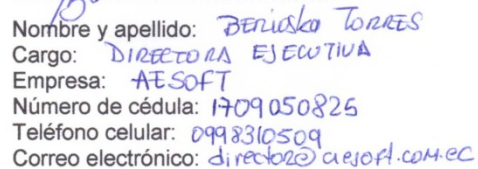 Nombre y apellido: Beriosko Torres
Cargo: DIRECTORA EJECUTIVA
Empresa: AESOFT
Número de cédula: 1709050825
Teléfono celular: 0998310509
Correo electrónico: director@aesoft.com.ec